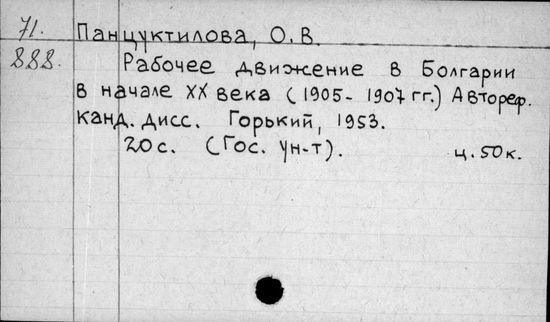 71. Панцуктилова, О.В.
888. Рабочее движение в Болгарии
в начале XX века (1905-1907 гг.) Автореф.
канд. дисс. Горький, 1953.
20 с. (Гос. ун-т). ц. 50 к.